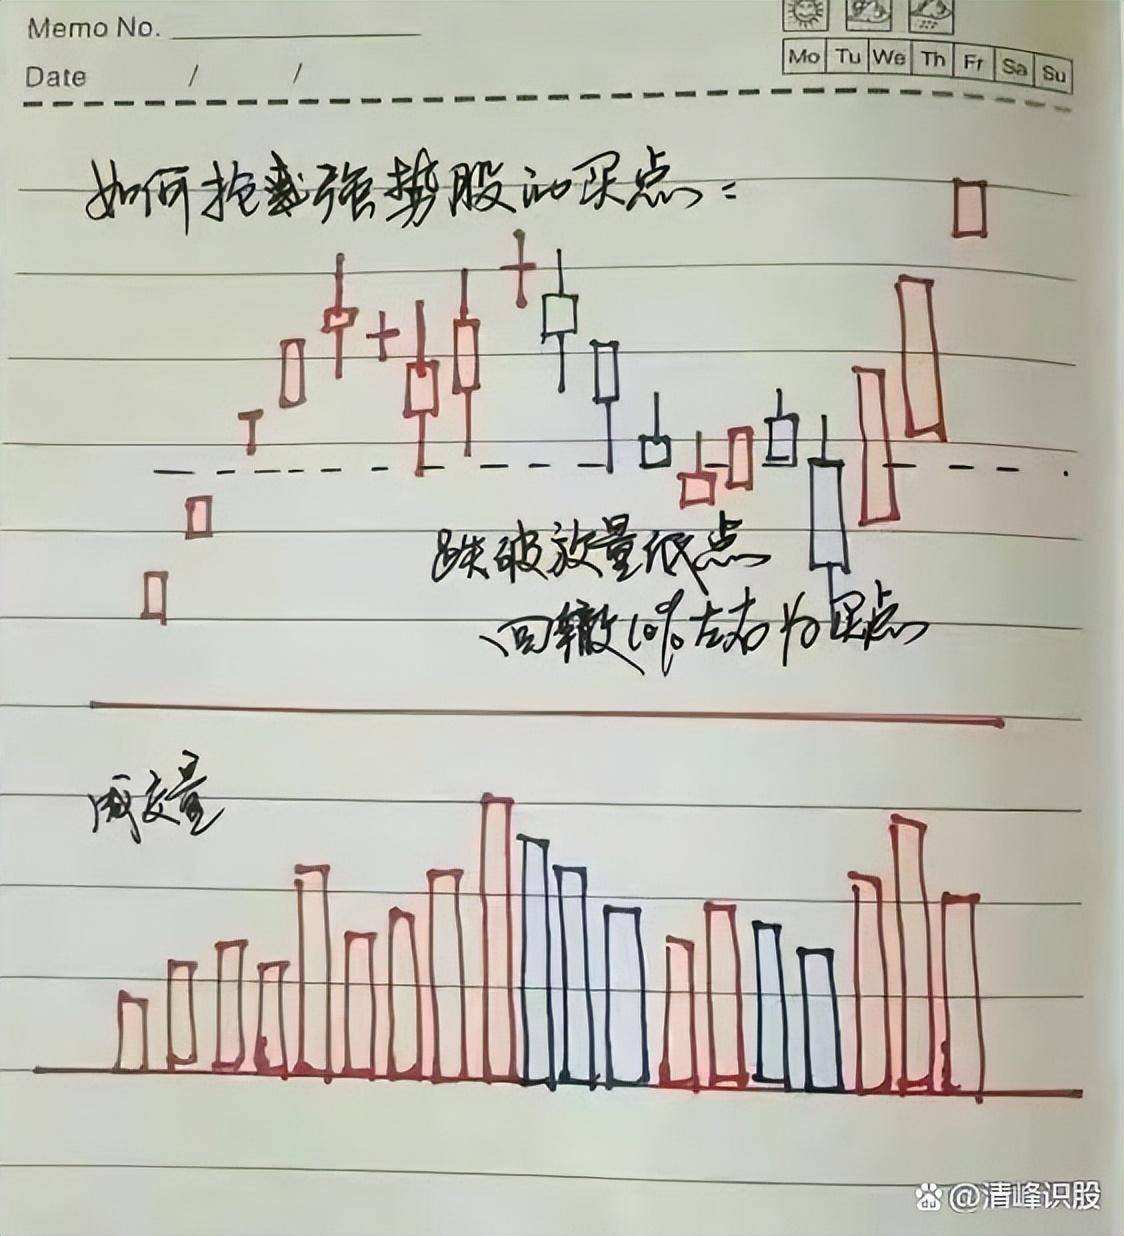 Memo No.
Mo Tu We Th Fr Sa Su
Date / /
如何抢到强势股的买点：
跌破放量低点
回辙10%左右为买点
成交量
@清峰识股